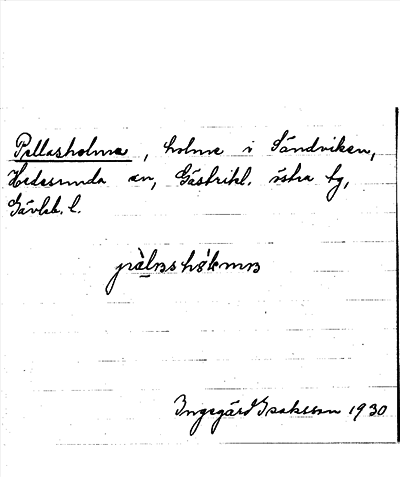 Pellasholma, holme i Sandviken,
Hedesunda sn, Gästrikl. östra tg,
Gävleb. l.
Ingegärd Isaksson 1930